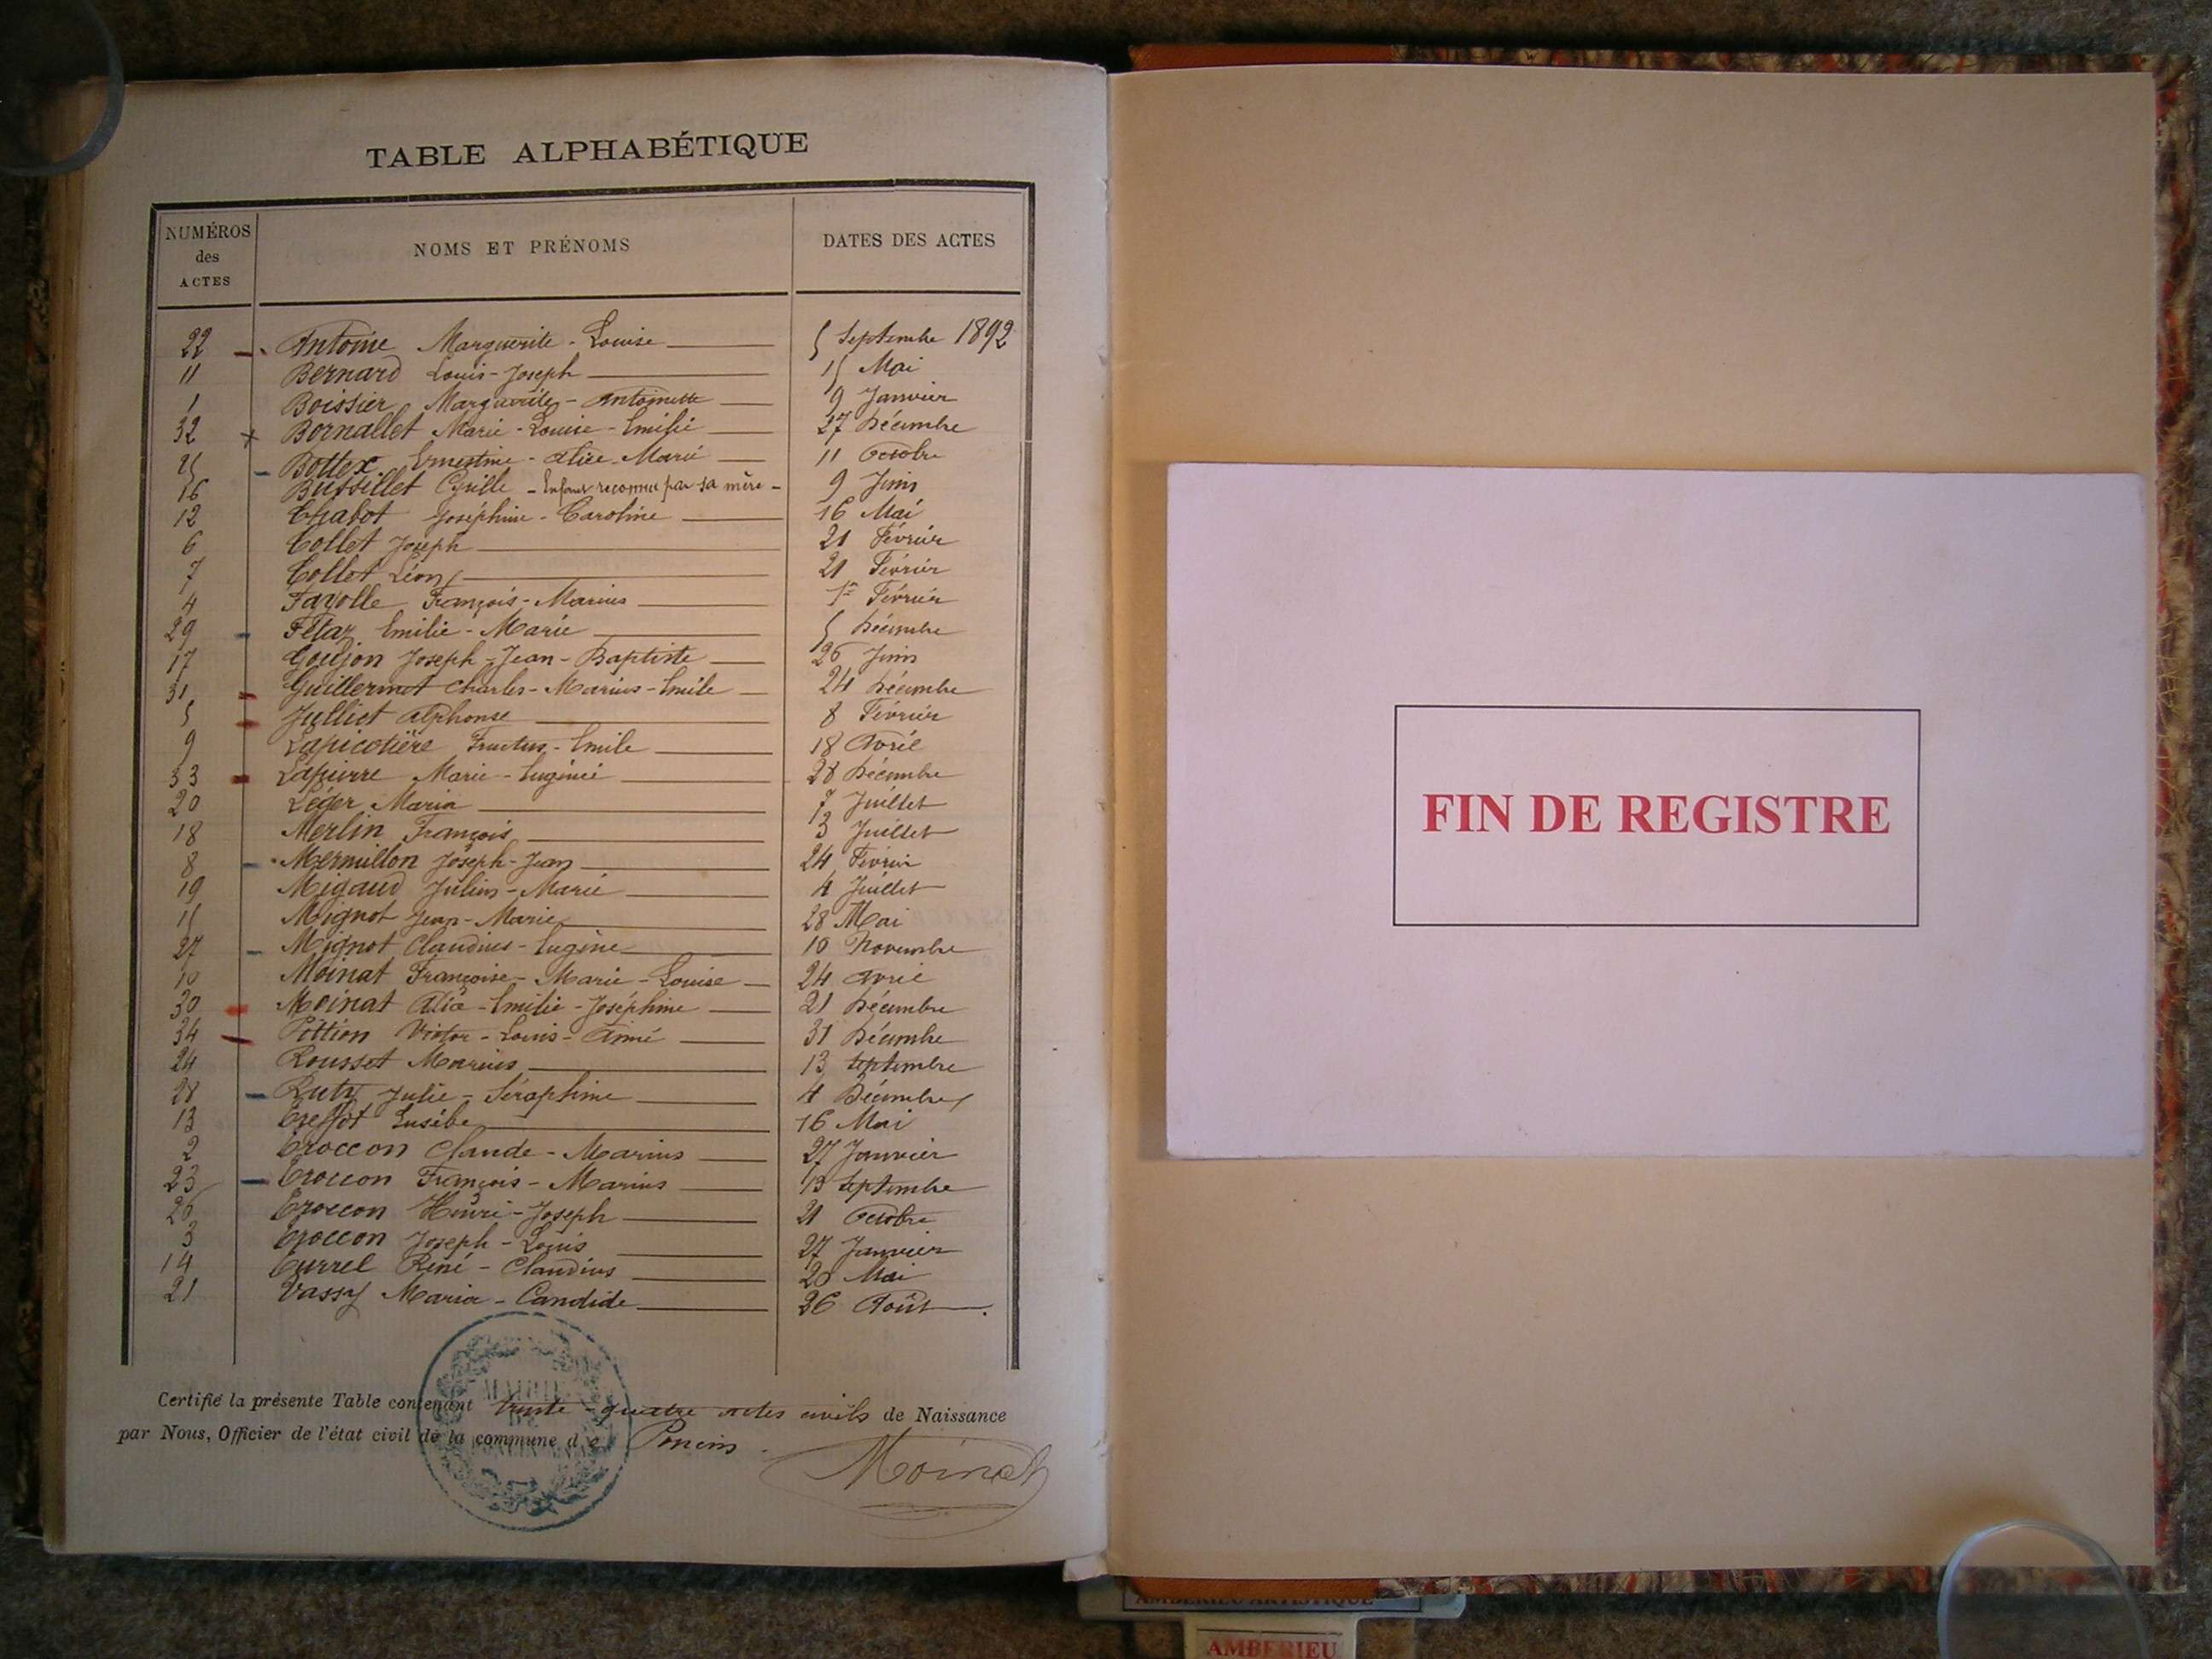 TABLE ALPHABÉTIQUE
NUMÉROS des ACTES
NOMS ET PRÉNOMS
DATES DES ACTES
22 Antoine Marguerite - Louise 5 Septembre 1892
11 Bernard Louis - Joseph 15 Mai
1 Boissier Marguerite - Antoinette 9 Janvier
32 Bornallet Marie - Louise - Emilie 27 Décembre
25 Bottex Ernestine - Alice - Marie 11 Octobre
16 Bussillet Cyrille - Enfant reconnu par sa mère - 9 Juin
12 Chabot Joséphine - Caroline 16 Mai
6 Collet Joseph 21 Février
7 Collet Léon 21 Février
4 Fayolle François - Marius 1er Février
29 Fétaz Emilie - Marie 5 Décembre
17 Goujon Joseph - Jean - Baptiste 26 Juin
31 Guillermet Charles - Marius - Emile 24 Décembre
5 Julliet Alphonse 8 Février
9 Lapicotière Fructus - Emile 18 Avril
33 Lapierre Marie - Eugénie 28 Décembre
20 Léger Maria 7 Juillet
18 Merlin François 3 Juillet
8 Mermillon Joseph - Jean 24 Février
19 Migaud Julien - Marie 4 Juillet
15 Mignot Jean - Marie 28 Mai
27 Mignot Claudius - Eugène 10 Novembre
10 Moinat Françoise - Marie - Louise 24 Avril
30 Moinat Alice - Emilie - Joséphine 21 Décembre
34 Pottion Victor - Louis - Aimé 31 Décembre
24 Rousset Marius 13 Septembre
28 Ruty Julie - Séraphine 4 Décembre
13 Treffot Eusèbe 16 Mai
2 Troccon Claude - Marius 27 Janvier
23 Troccon François - Marius 13 Septembre
26 Troccon Henri - Joseph 21 Octobre
3 Troccon Joseph - Louis 27 Janvier
14 Turrel René - Claudius 20 Mai
21 Vassy Maria - Candide 26 Août
Certifié la présente Table contenant trente - quatre actes civils de Naissance
par Nous, Officier de l'état civil de la commune de Poncin.
MAIRIE DE
Moinat
FIN DE REGISTRE
AMBERIEU ARTISTIQUE
AMBERIEU